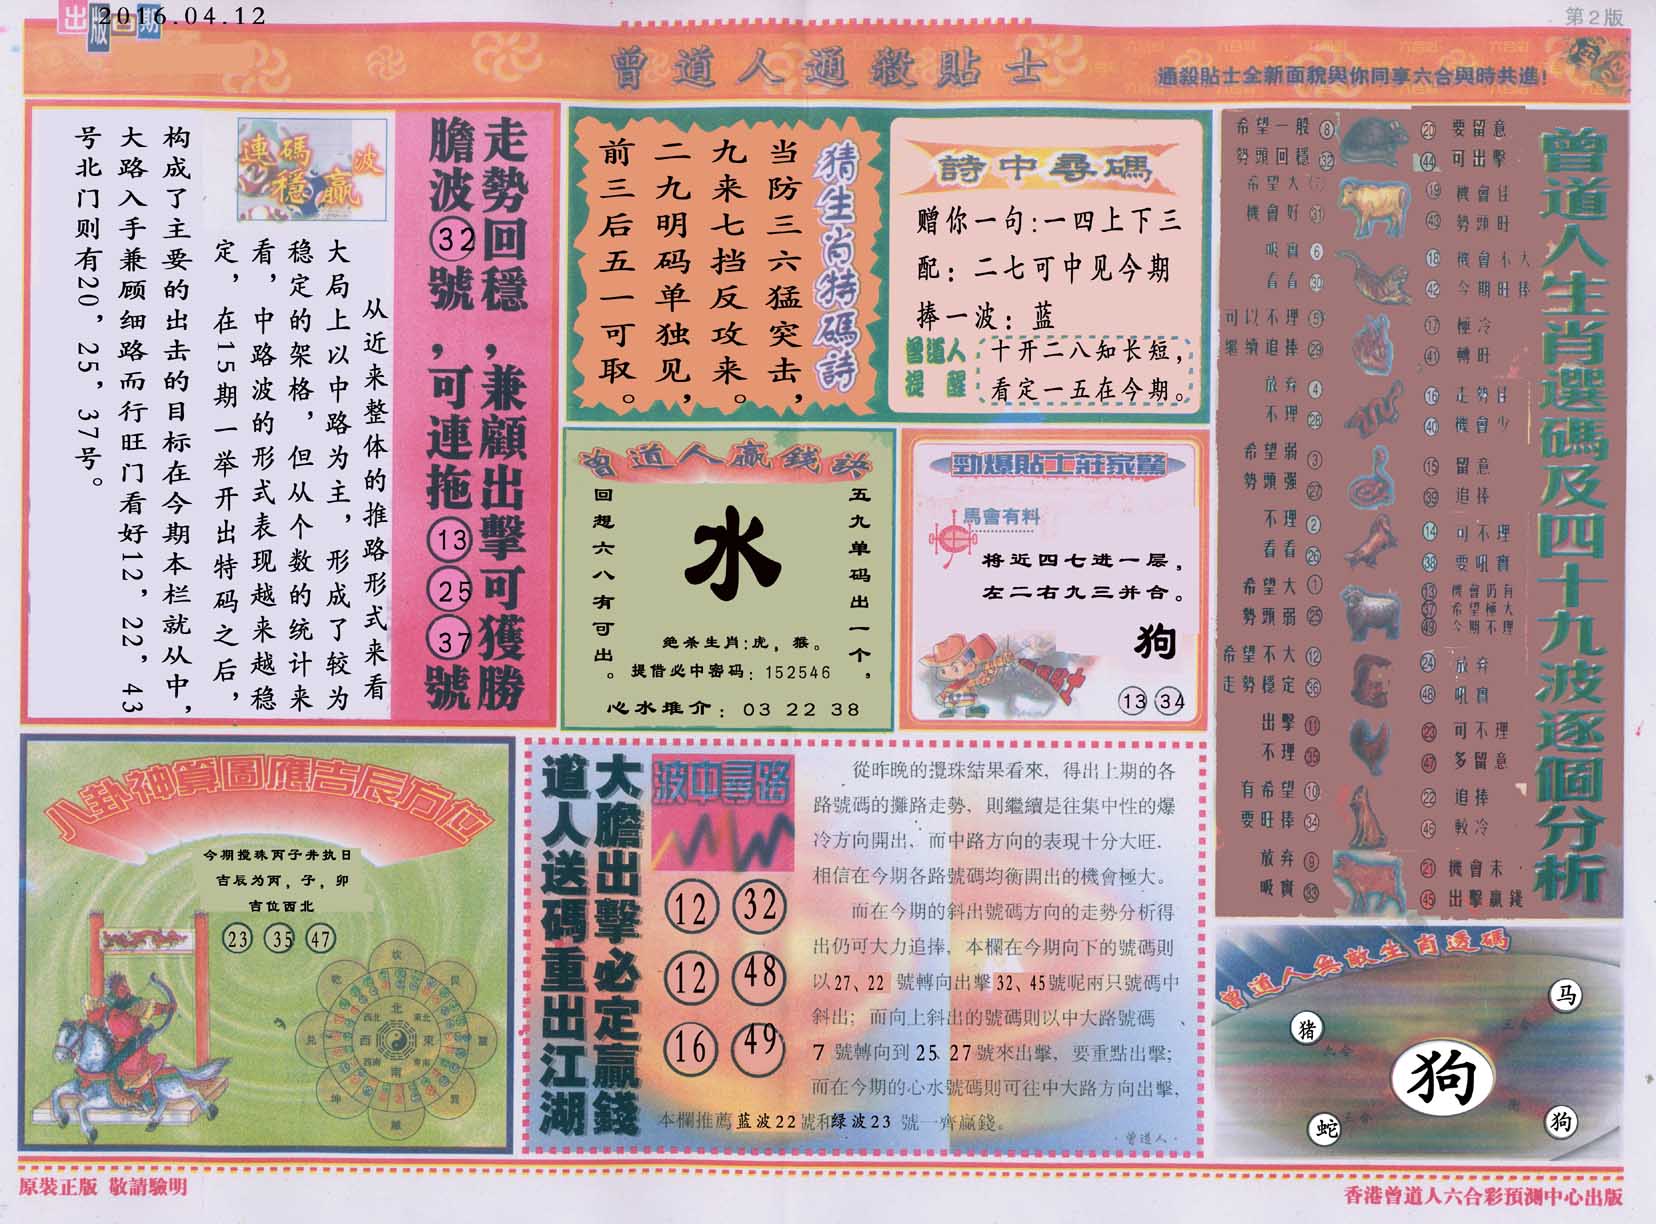 出版日期
2016.04.12
第2版
曾道人通殺貼士
通殺貼士全新面貌與你同享六合與時共進!
走勢回穩,兼顧出擊可獲勝
膽波32號,可連拖13 25 37號
連碼穩贏波
从近来整体的推路形式来看
大局上以中路为主,形成了较为
稳定的架格,但从个数的统计来
看,中路波的形式表现越来越稳
定,在15期一举开出特码之后,
构成了主要的出击的目标在今期本栏就从中,
大路入手兼顾细路而行旺门看好12,22,43
号北门则有20,25,37号。
猜生肖特碼詩
当防三六猛突击,
九来七挡反攻来。
二九明码单独见,
前三后五一可取。
詩中尋碼
赠你一句:一四上下三
配:二七可中见今期
捧一波:蓝
曾道人提醒
十开二八知长短,
看定一五在今期。
曾道人贏錢訣
五九单码出一个,
回想六八有可出。
水
绝杀生肖:虎,猴。
提借必中密码:152546
心水堆介:03 22 38
勁爆貼士莊家驚
馬會有料
将近四七进一层,
左二右九三并合。
狗
13 34
曾道人生肖選碼及四十九波逐個分析
希望一般 8 20 要留意
勢頭回穩 32 44 可出擊
希望大 7 19 機會佳
機會好 31 43 勢頭旺
吸實 6 18 機會不大
看看 30 42 今期旺捧
可以不理 5 17 極冷
繼續追捧 29 41 轉旺
放弃 4 16 走勢佳
不理 28 40 機會少
希望弱 3 15 留意
勢頭强 27 39 追捧
不理 2 14 可不理
看看 26 38 要吼實
希望大 1 13 機會仍有
37 希望極大
勢頭弱 25 49 今期不理
希望不大 12 24 放弃
走勢穩定 36 48 吼實
出擊 11 23 可不理
不理 35 47 多留意
有希望 10 22 追捧
要旺捧 34 46 較冷
放弃 9 21 機會未
吸實 33 45 出擊贏錢
八卦神算圖應吉辰方位
今期搅珠丙子井执日
吉辰为丙,子,卯
吉位西北
23 35 47
坎
乾 艮
北
西北 東北
兌 西 東 震
西南 東南
南
坤 巽
離
大膽出擊必定贏錢
道人送碼重出江湖
波中尋路
12 32
12 48
16 49
從昨晚的攪珠結果看來,得出上期的各
路號碼的攤路走勢,則繼續是往集中性的爆
冷方向開出,而中路方向的表現十分大旺.
相信在今期各路號碼均衡開出的機會極大。
而在今期的斜出號碼方向的走勢分析得
出仍可大力追捧,本欄在今期向下的號碼則
以27、22 號轉向出擊32、45號呢兩只號碼中
斜出;而向上斜出的號碼則以中大路號碼、
7 號轉向到25 27號來出擊,要重點出擊;
而在今期的心水號碼則可往中大路方向出擊,
本欄推薦蓝波22號和绿波23 號一齊贏錢。
·曾道人·
曾道人無敵生肖透碼
马
猪
三合
六合
狗
三合
衝
蛇
狗
原裝正版 敬請驗明
香港曾道人六合彩預測中心出版